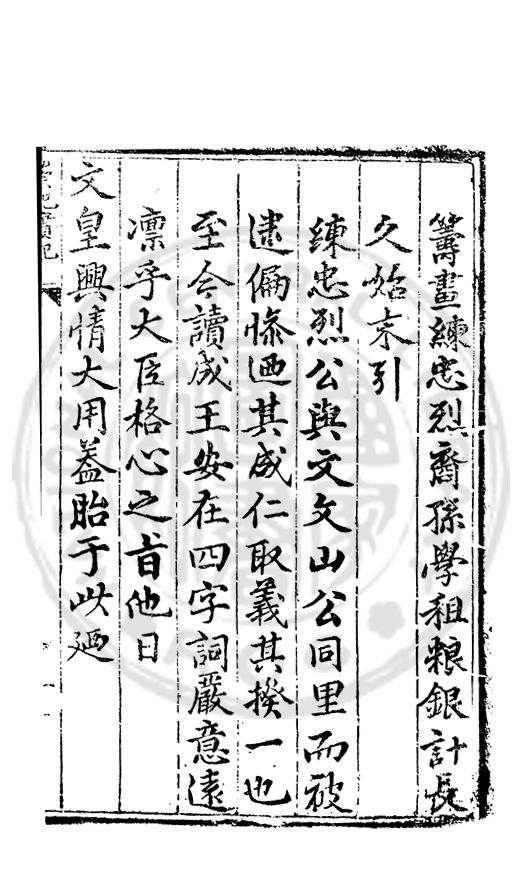 籌畫練忠烈裔孫學租粮銀計長
久始末引
練忠烈公與文文山公同里而被
逮偏慘廼其成仁取義其揆一也
至今讀成王安在四字詞嚴意遠
凛乎大臣格心之旨他日
文皇興情大用葢胎于此廼